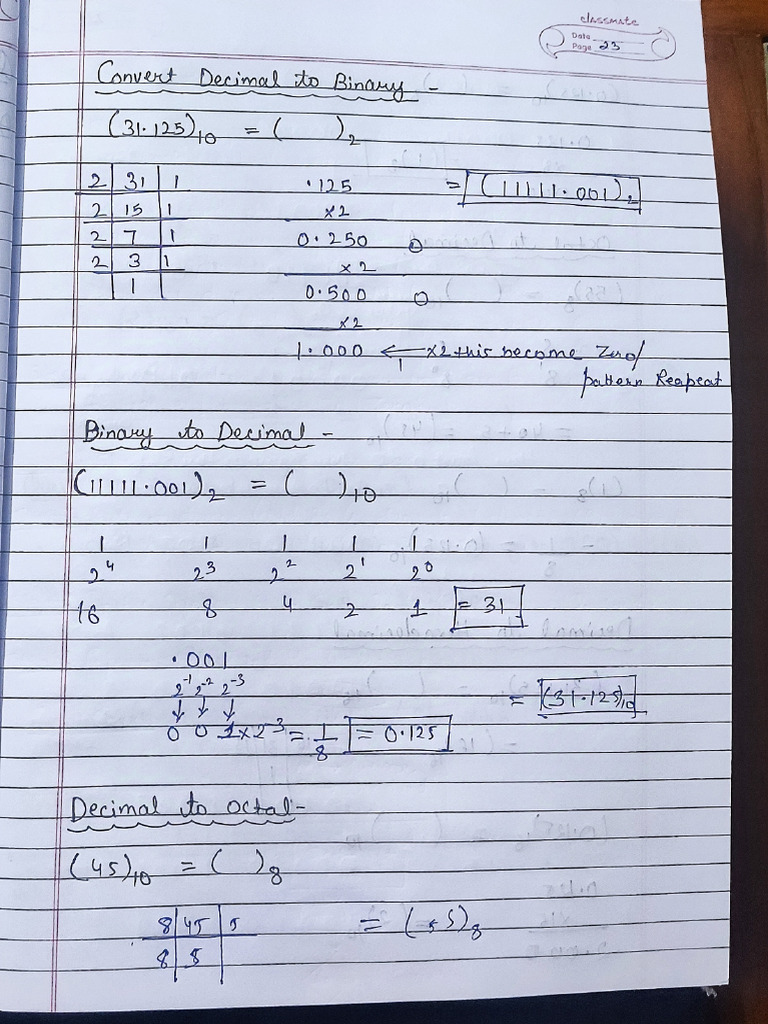 classmate
Date
Page 23
Convert Decimal to Binary -
(31.125)₁₀ = ( )₂
2 | 31 | 1 .125 = (11111.001)₂
2 | 15 | 1 ×2
2 | 7 | 1 0.250 0
2 | 3 | 1 ×2
1 0.500 0
×2
1.000 ← ×2 this become Zero/
1 pattern Reapeat
Binary to Decimal -
(11111.001)₂ = ( )₁₀
1 1 1 1 .1
2⁴ 2³ 2² 2¹ 2⁰
16 8 4 2 1 = 31
.001
2⁻¹ 2⁻² 2⁻³ = (31.125)₁₀
↓ ↓ ↓
0 0 1×2⁻³ = 1/8 = 0.125
Decimal to Octal -
(45)₁₀ = ( )₈
8 | 45 | 5 = (55)₈
8 | 5